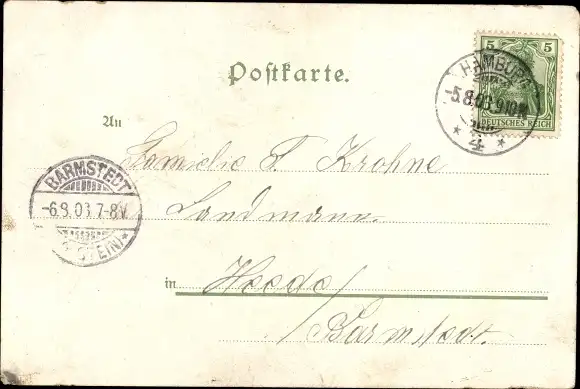 5 5
HAMBURG
-5.8.03.9-10N
* 4 *
DEUTSCHES REICH
Postkarte.
An
Familie F. Krohne
Landmann.
BARMSTEDT
-6.8.03.7-8V.
in Heede/
Barmstedt.